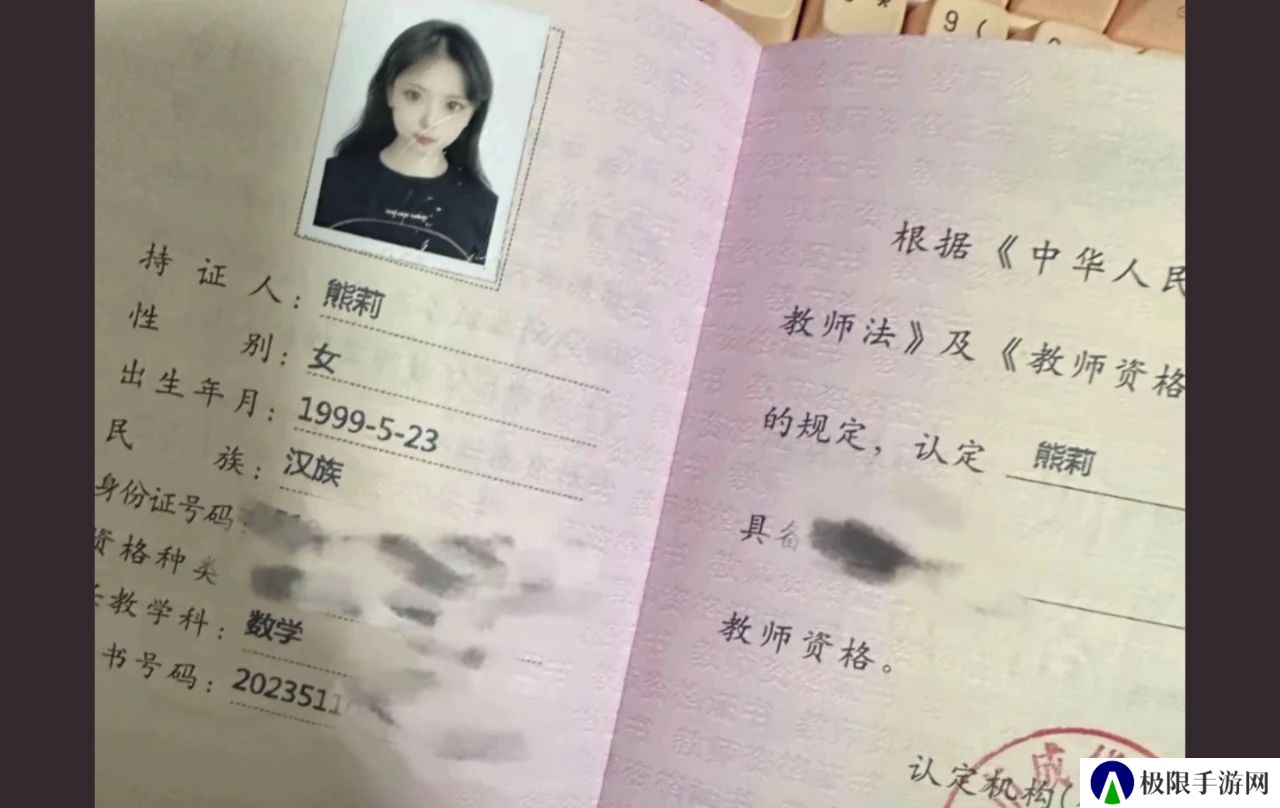 持证人：熊莉
性别：女
出生年月：1999-5-23
民族：汉族
身份证号码：
资格种类
教学科：数学
书号码：2023511
根据《中华人民
教师法》及《教师资格
的规定，认定 熊莉
具备
教师资格。
认定机构(
成
9 (
极限手游网